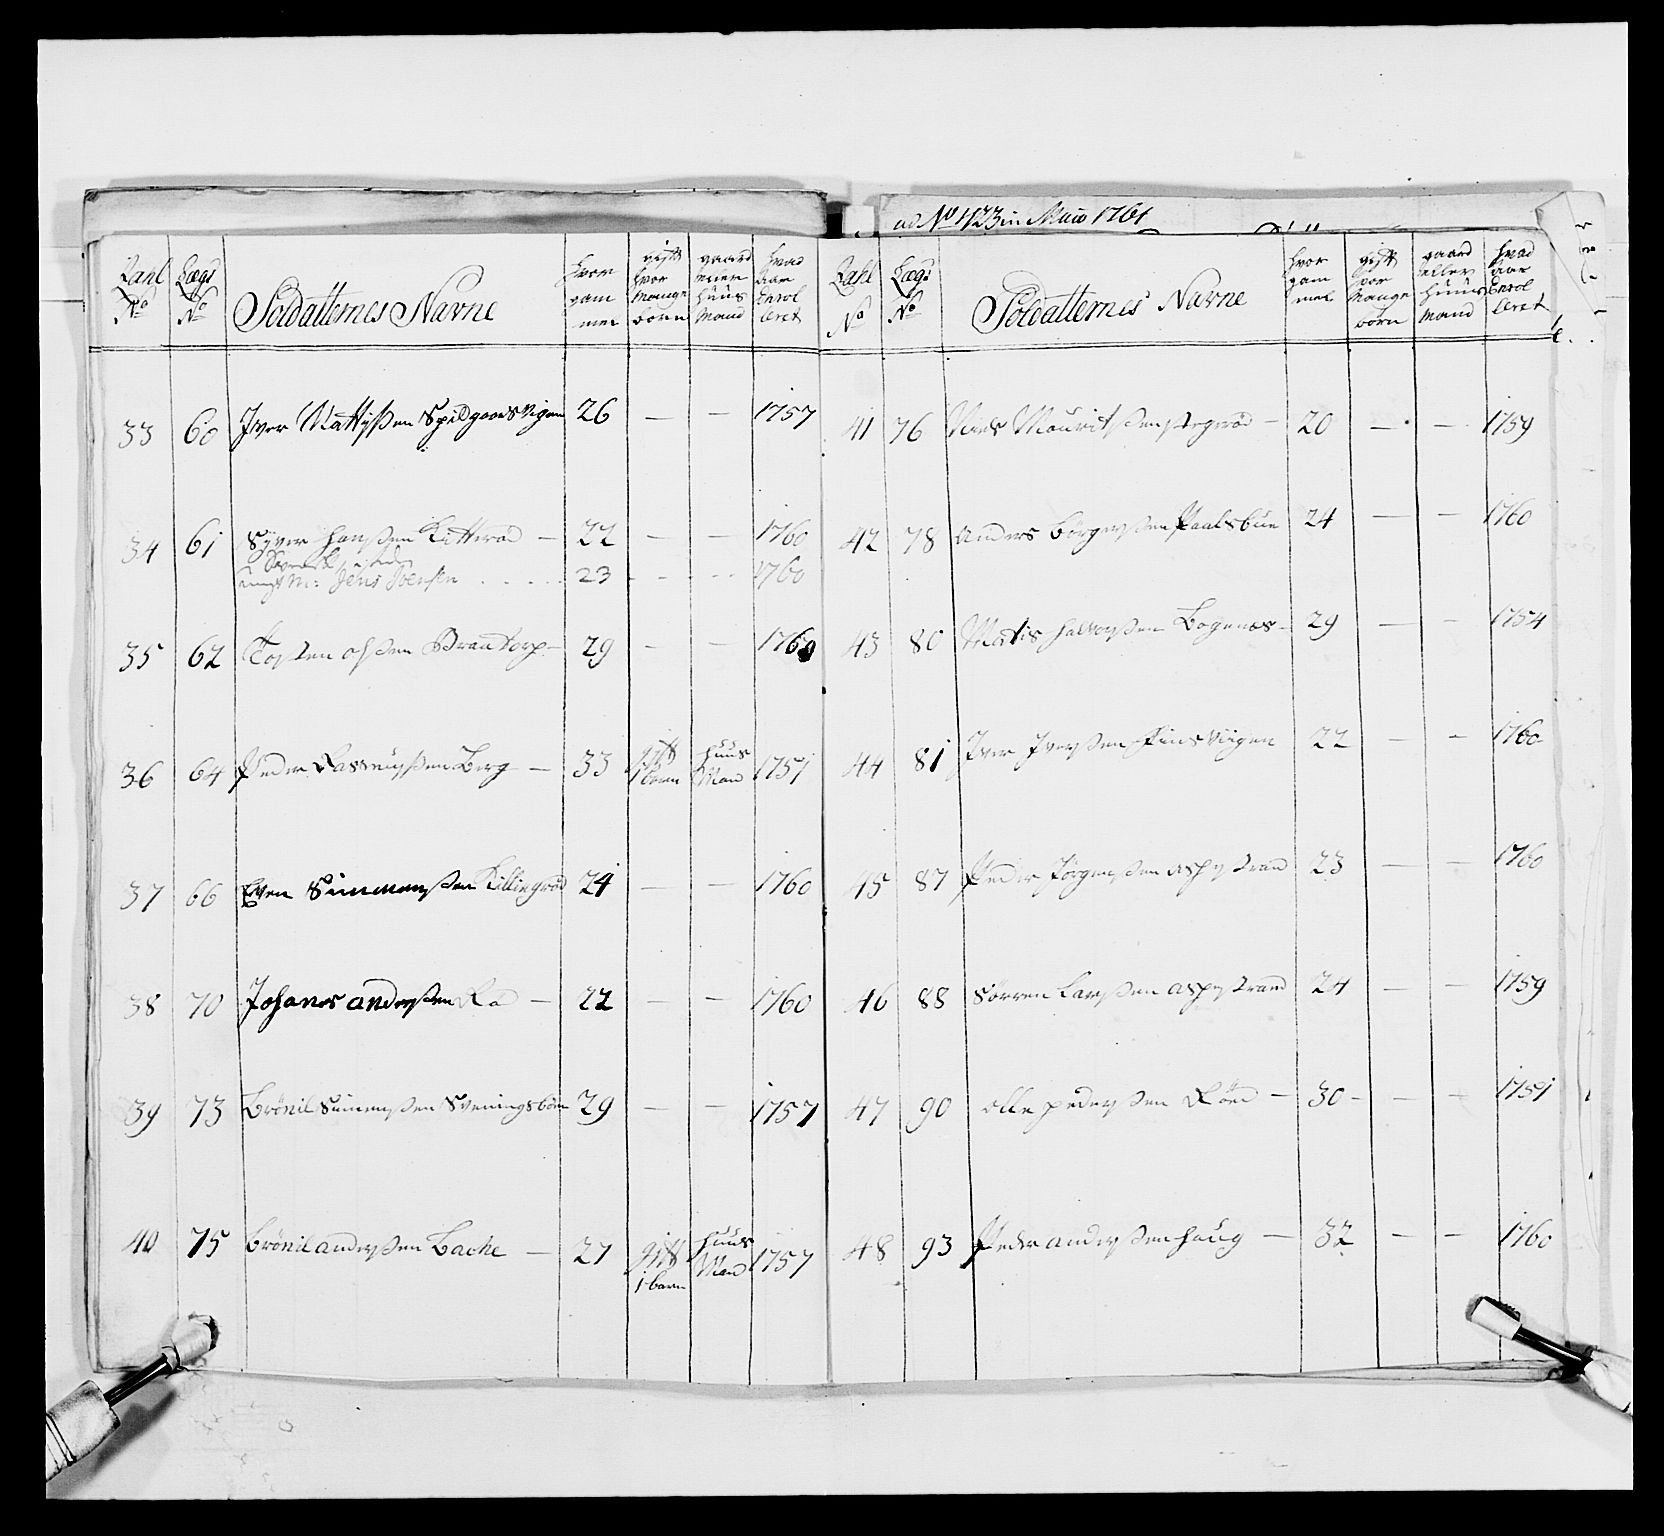 ad No 1123 in Maio 1761
Zahl No Lægs No Soldatternes Navne Hvor gam mel gift hvor Mange børn gaard eller Huus Mand hvad Aar Enrol leret
33 60 Iver Mattyßen Spildgoosvigen 26 — — 1757
34 61 Syver Hanßen Kitterød — 22 — — 1760
Jens Joensen 23 1760
35 62 Tosten olßen Brandtorp — 29 — — 1760
36 64 Peder Rasmusßen Berg — 33 gift 1 barn Huus Mand 1751
37 66 Even Simmensßen Killingrød 24 — — 1760
38 70 Johanes andersßen Rød — 22 — — 1760
39 73 Brönil Simensßen Sveningsbön 29 — — 1757
40 75 brönil andersßen Bache — 27 gift 1 barn Huus Mand 1757
Zahl No Lægs No Soldatternes Navne hvor gam mel gift hvor Mange børn gaard eller Huus Mand hvad Aar Enrol leret
41 76 Niels Mouritsßen — 20 — — 1759
42 78 Anders Börgersßen Paalsbue 24 — — 1760
43 80 Matis Halvorßen Bogenæs — 29 — — 1754
44 81 Iver Iversßen Finsviigen 22 — — 1760
45 87 Peder Jörgensßen aspestrand 23 — — 1760
46 88 Sörren Larsßen aspestrand 24 — — 1759
47 90 olle pedersßen Röed — 30 — — 1751
48 93 Peder andersßen Haug — 32 — — 1760